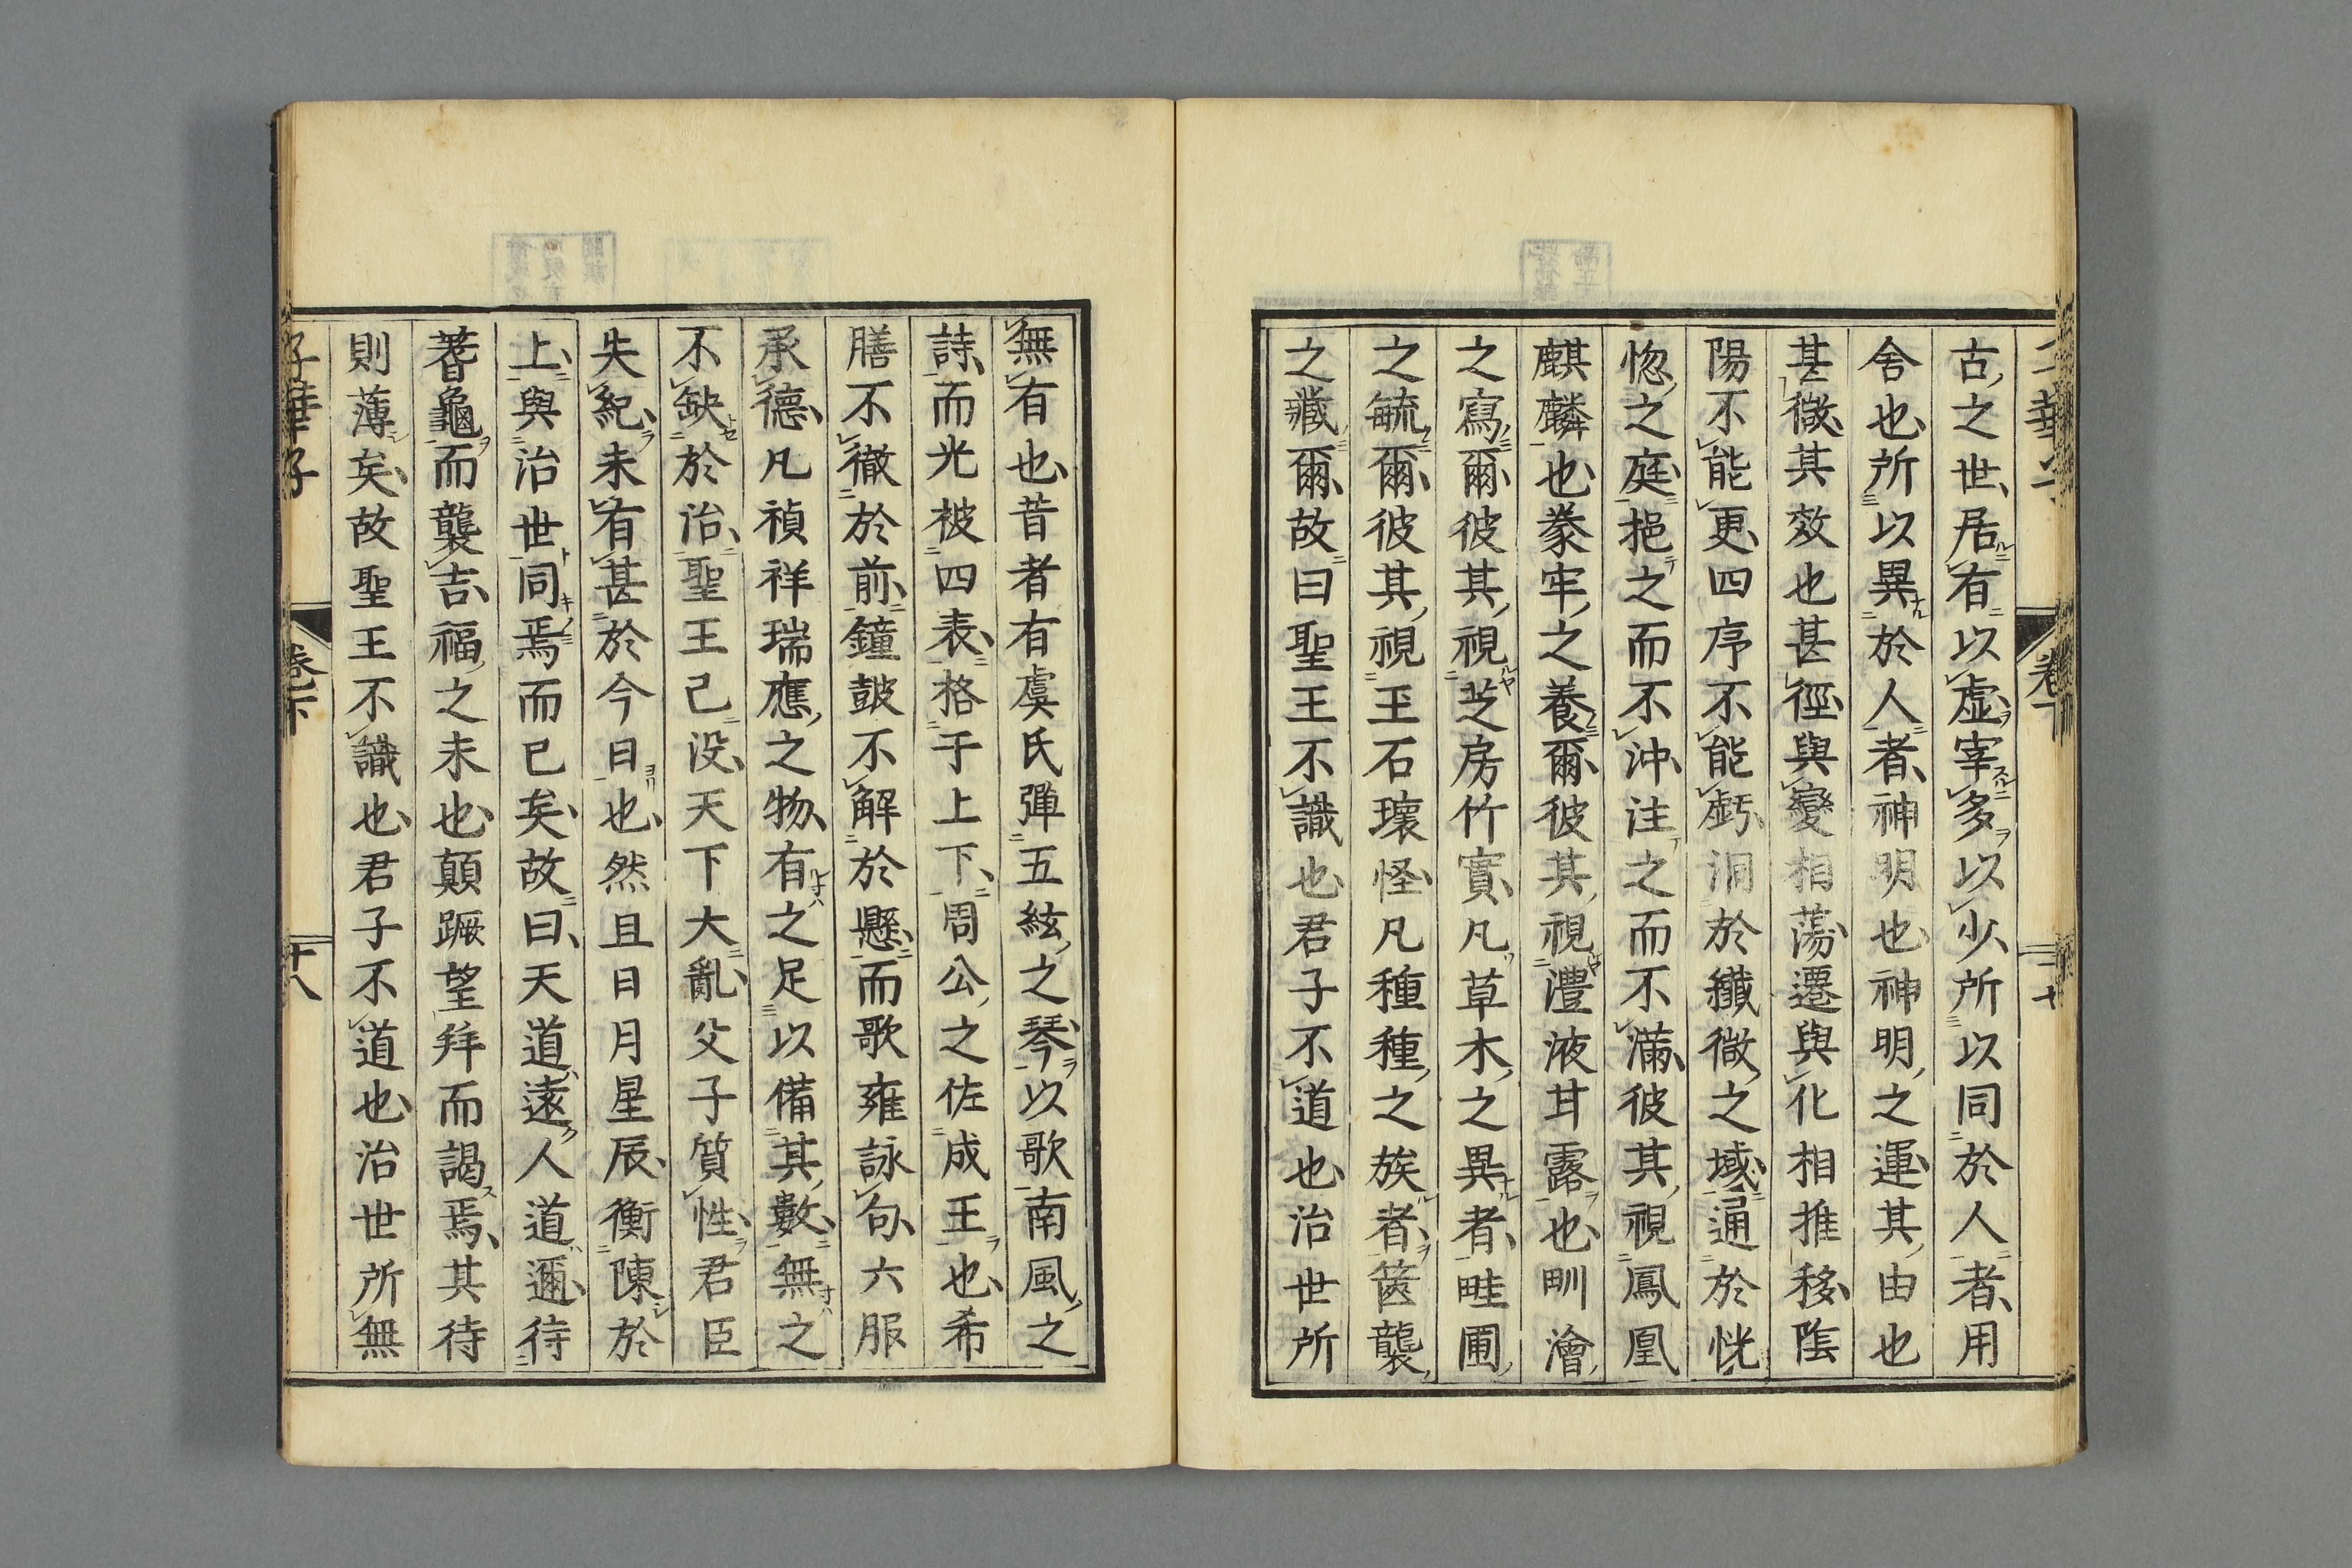 古之世居有以虚宰多以少所以同於人者用
舍也所以異於人者神明也神明之運其由也
甚㣲其效也甚徑與變相蕩遷與化相推移陰
陽不能更四序不能虧洞於纎㣲之域通於恍
惚之庭挹之而不沖注之而不滿彼其視鳳凰
麒麟也豢牢之養爾彼其視澧液甘露也甽澮
之寫爾彼其視芝房竹實凡草木之異者畦圃
之毓爾彼其視玉石瓌怪凡種種之族者篋襲
之藏爾故曰聖王不識也君子不道也治世所
無有也昔者有虞氏彈五絃之琴以歌南風之
詩而光被四表格于上下周公之佐成王也希
膳不徹於前鐘鼓不解於懸而歌雍詠句六服
承德凡禎祥瑞應之物有之足以備其數無之
不缺於治聖王已没天下大亂父子質性君臣
失紀未有甚於今日也然且日月星辰衡陳於
上與治世同焉而已矣故曰天道遠人道邇待
蓍龜而襲吉福之末也顛蹶望拜而謁焉其待
則薄矣故聖王不識也君子不道也治世所無
子華子
卷下
十八